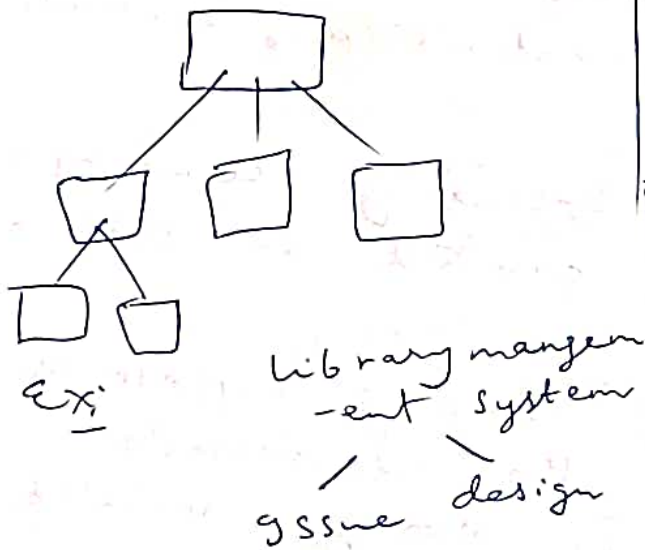 Ex:
library mangem
-ent system
Issue design